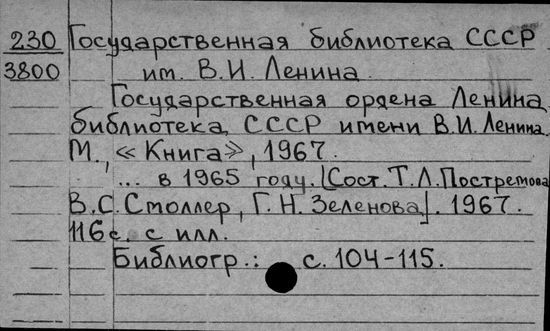 230 Государственная библиотека СССР
3800 им. В.И. Ленина
Государственная ордена Ленина
библиотека СССР имени В.И. Ленина.
М., «Книга», 1967.
... в 1965 году. [Сост. Т.Л. Постремова
В.С. Столлер, Г.Н. Зеленова]. 1967.
116 с. с илл.
Библиогр.: с. 104-115.